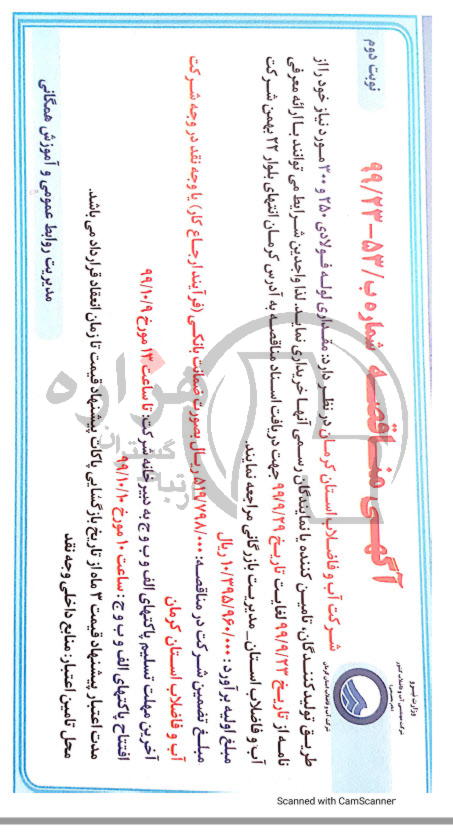 وزارت نیرو
شرکت مهندسی آب و فاضلاب کشور
(مادر تخصصی)
شرکت آب و فاضلاب استان کرمان
آگهی مناقصه شماره ب/۵۳-۹۹/۲۳
نوبت دوم
شرکت آب و فاضلاب استان کرمان در نظر دارد: مقداری لوله فولادی ۲۵۰ و ۳۰۰ مورد نیاز خود را از
طریق تولیدکنندگان، تامین کننده یا نمایندگان رسمی آنها خریداری نماید. لذا واجدین شرایط می توانند با ارائه معرفی
نامه از تاریخ ۹۹/۹/۲۳ لغایت تاریخ ۹۹/۹/۲۹ جهت دریافت اسناد مناقصه به آدرس کرمان انتهای بلوار ۲۲ بهمن شرکت
آب و فاضلاب استان_ مدیریت بازرگانی مراجعه نمایند.
مبلغ اولیه برآورد : ۱۰/۳۹۵/۹۶۰/۰۰۰ ریال
مبلغ تضمین شرکت در مناقصه: ۵۱۹/۷۹۸/۰۰۰ ریال بصورت ضمانت بانکی (فرآیند ارجاع کار) یا وجه نقد در وجه شرکت
آب و فاضلاب استان کرمان
آخرین مهلت تسلیم پاکتهای الف و ب و ج به دبیرخانه شرکت: تا ساعت ۱۳ مورخ ۹۹/۱۰/۹
افتتاح پاکتهای الف و ب و ج : ساعت ۱۰ مورخ ۹۹/۱۰/۱۰
مدت اعتبار پیشنهاد قیمت ۳ ماه از تاریخ بازگشایی پاکات پیشنهاد قیمت تا زمان انعقاد قرارداد می باشد.
محل تامین اعتبار: منابع داخلی وجه نقد
مدیریت روابط عمومی و آموزش همگانی
Scanned with CamScanner